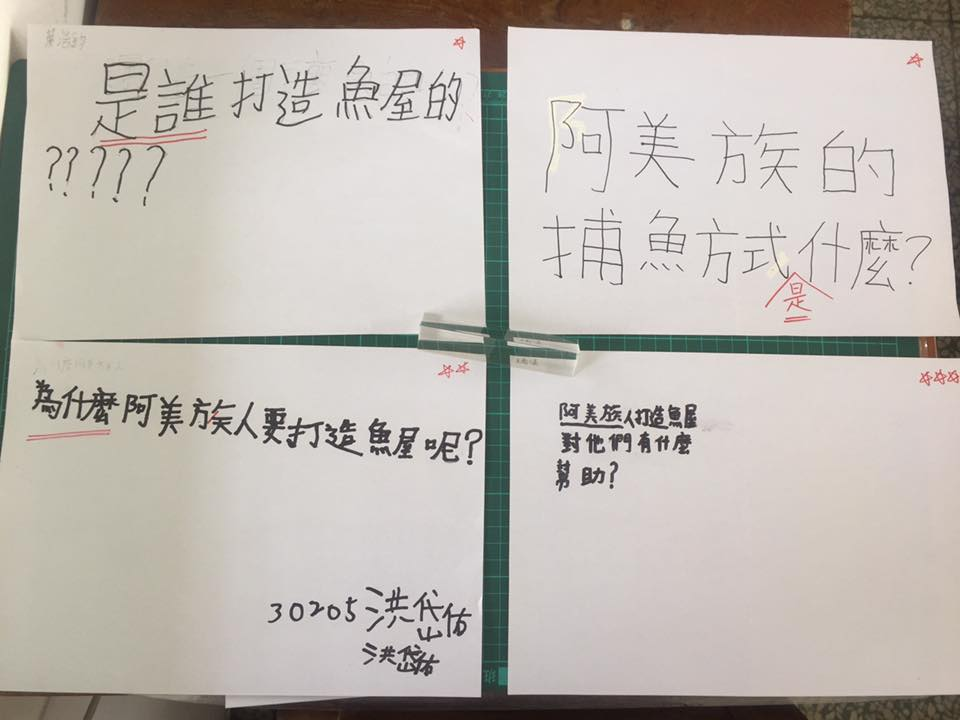 是誰打造魚屋的
?????
阿美族的
捕魚方式什麼?
是
為什麼阿美族人要打造魚屋呢?
30205洪岱佑
洪岱佑
阿美族人打造魚屋
對他們有什麼
幫助?